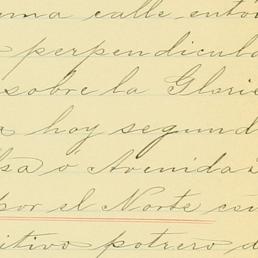 una calle, entón
perpendicula
sobre la Glorie
a hoy segund
lsa o Avenida
por el Norte con
itivo potrero d